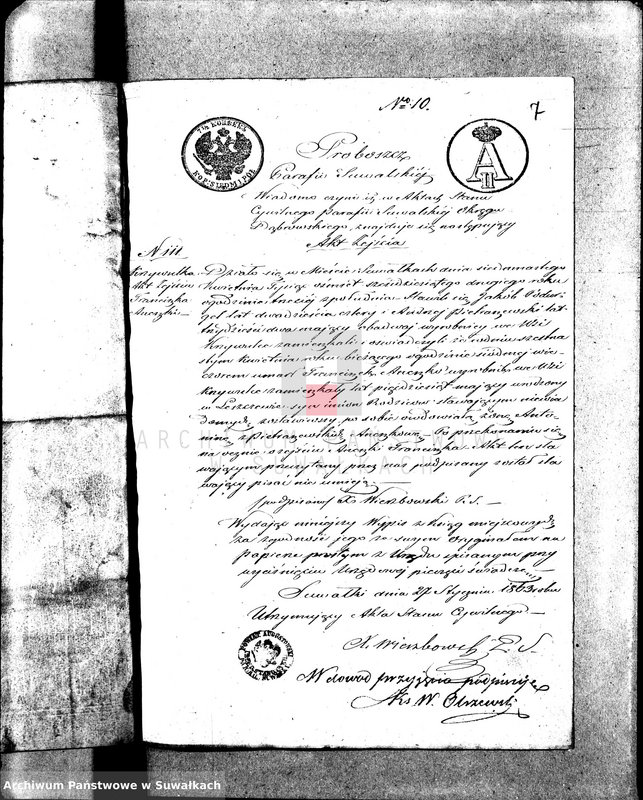 No 10.
7
7½ KOPIEEK
KOP. SIEDM I PÓŁ
A II
Proboszcz
Parafii Suwalskiéj
Wiadomo czyni iż w Aktach Stanu
Cywilnego parafii Suwalskiéj Okręgu
Dąbrowskiego, znajduje się następujący
Akt Zejścia
N III
Krzywulka
Akt Zejścia
Franciszka
Anczzki
Działo się w Mieście Suwałkach dnia siedmnastego
Kwietnia Tysiąc ośmset sześćdziesiątego drugiego roku
o godzinie trzeciéj z południa. Stawili się Jakób
lat dwadzieścia cztery i Andrzej Pietraszewski lat
trzydzieści dwa mający obadwaj wyrobnicy we Wsi
Krzywulce zamieszkali i oświadczyli iż w dniu szesna-
stym Kwietnia roku bieżącego o godzinie siódmej wie-
czorem umarł Franciszek wyrobnik we Wsi
Krzywulce zamieszkały lat pięćdziesiąt mający urodzony
w Leszczewie syn imion Rodziców stawającym niewia-
domych, zostawiwszy po sobie owdowiałą żonę Anto-
ninę z Pietraszewskich. Po przekonaniu się
naocznie o zejściu Franciszka Akt ten sta-
wającym przeczytany przez nas podpisany został sta-
wający pisać nie umieją.
(podpisano) Ks Wierzbowski P. S.
Wydając niniejszy Wypis z Ksiąg miejscowych
za zgodność jego ze swym oryginałem na
papierze prostym z Urzędu spisanym przy
wyciśnięciu Urzędowej pieczęci świadczę
Suwałki dnia 27 Stycznia 1863 roku
Utrzymujący Akta Stanu Cywilnego
X. Wierzbowski P. S.
W dowód przyjęcia podpisuję
Ks W. Olszewski
ARCHIWUM PAŃSTWOWE W SUWAŁKACH
Archiwum Państwowe w Suwałkach